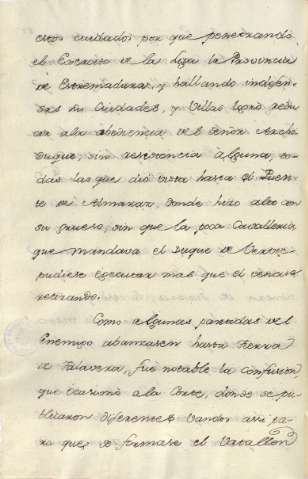 estos cuidados por que penetrando
el Exercito de la Liga la Provincia
de Estremadura, y hallando indefen-
sas las Ciudades, y Villas logró redu-
cir a la obediencia del Señor Archi-
Duque, sin resistencia alguna, to-
das las que dio vista hasta el Puen-
te de Almaraz, donde hizo alto con
su grueso, sin que la poca Cavalleria
que mandava el Duque de
pudiese executar mas que el
retirando.
Como algunas partidas del
Enemigo abanzasen hasta tierra
de Talavera, fué notable la confusion
que ocasionó a la Corte, donde se pu-
blicaron diferentes Vandos assi pa-
ra que se formase el Batallon